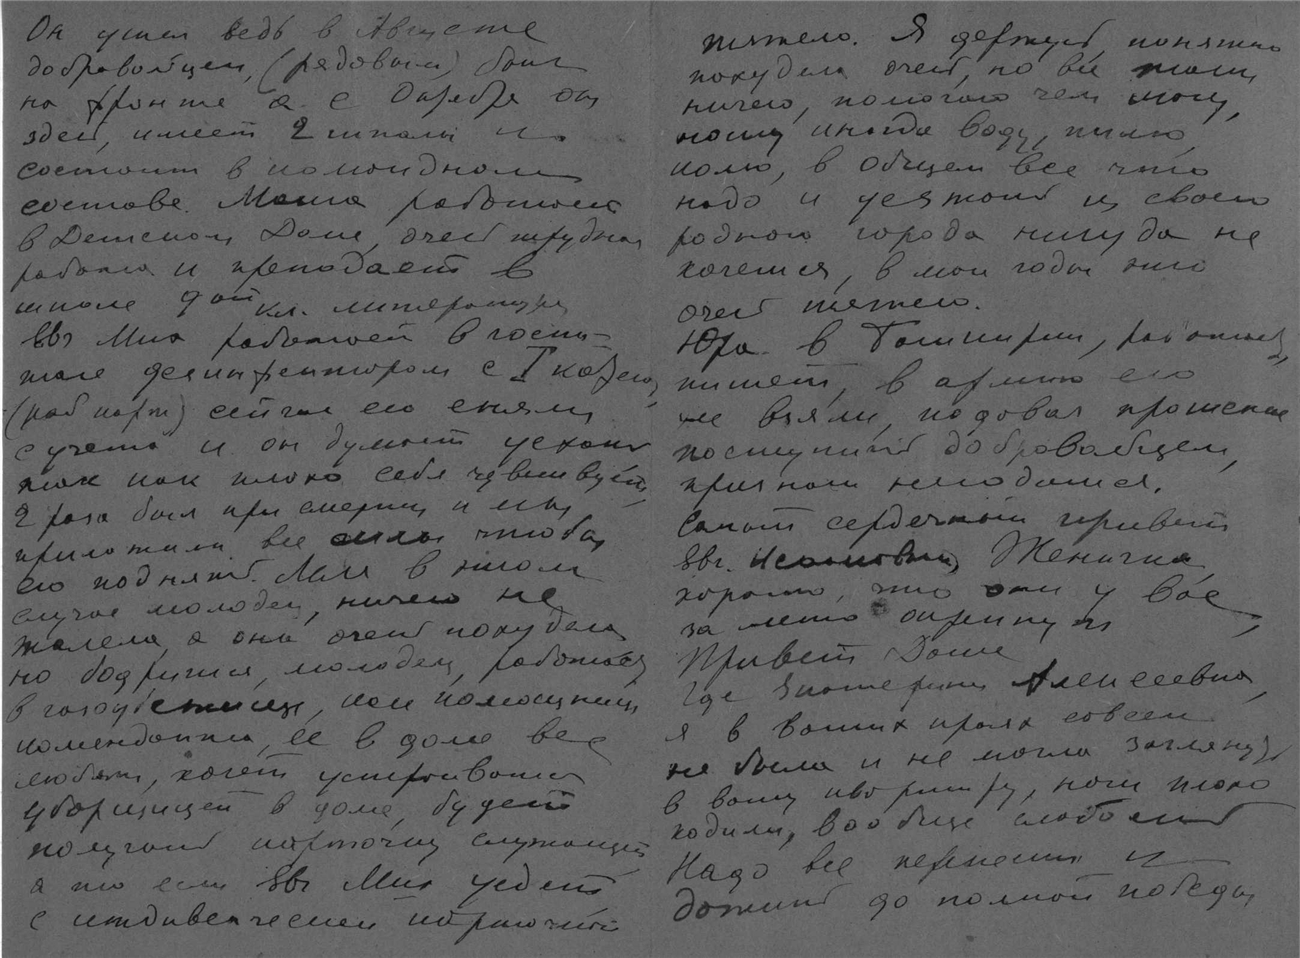 Он ушел ведь в Августе
добровольцем, (рядовым) был
на фронте а с Октября он
здесь, имеет 2 шпалы и
состоит в командном
составе. Маша работает
в Детском Доме, очень трудная
работа и преподает в
школе кл. литературу
Евг Мих работает в госпи-
тале дезинфектором с I катег.
(раб карт) сейчас его сняли
с учета и он думает уехать
так как плохо себя чувствует,
2 раза был при смерти и мы
приложили все силы чтобы
его поднять. Маля в этом
случае молодец, ничего не
жалела, а она очень похудела
но бодрится, молодец, работает
в газоубежище, пом помощницы
коменданта, ее в доме все
любят, хотят устраивать
уборщицей в доме, будет
получать карточку служащей
а то если Евг Мих уедет,
с иждивенческой карточкой
тяжело. Я держусь, понятно
похудела очень, но все таки
ничего, помогаю чем могу,
ношу иногда воду, пилю,
колю, в общем все что
надо и уезжать из своего
родного города никуда не
хочется, в мои годы это
очень тяжело.
Юра в Башкирии, работает,
пишет, в армию его
не взяли, подавал прошение
поступить добровольцем,
признали негодным.
Самый сердечный привет
Евг. Женичка,
хорошо, что они у Вас,
за лето окрепнут
Привет Даше
Где Екатерина Алексеевна,
я в ваших краях совсем
не была и не могла заглянуть
в вашу квартиру, ноги плохо
ходили, вообще слабость
Надо все перенести и
дожить до полной победы